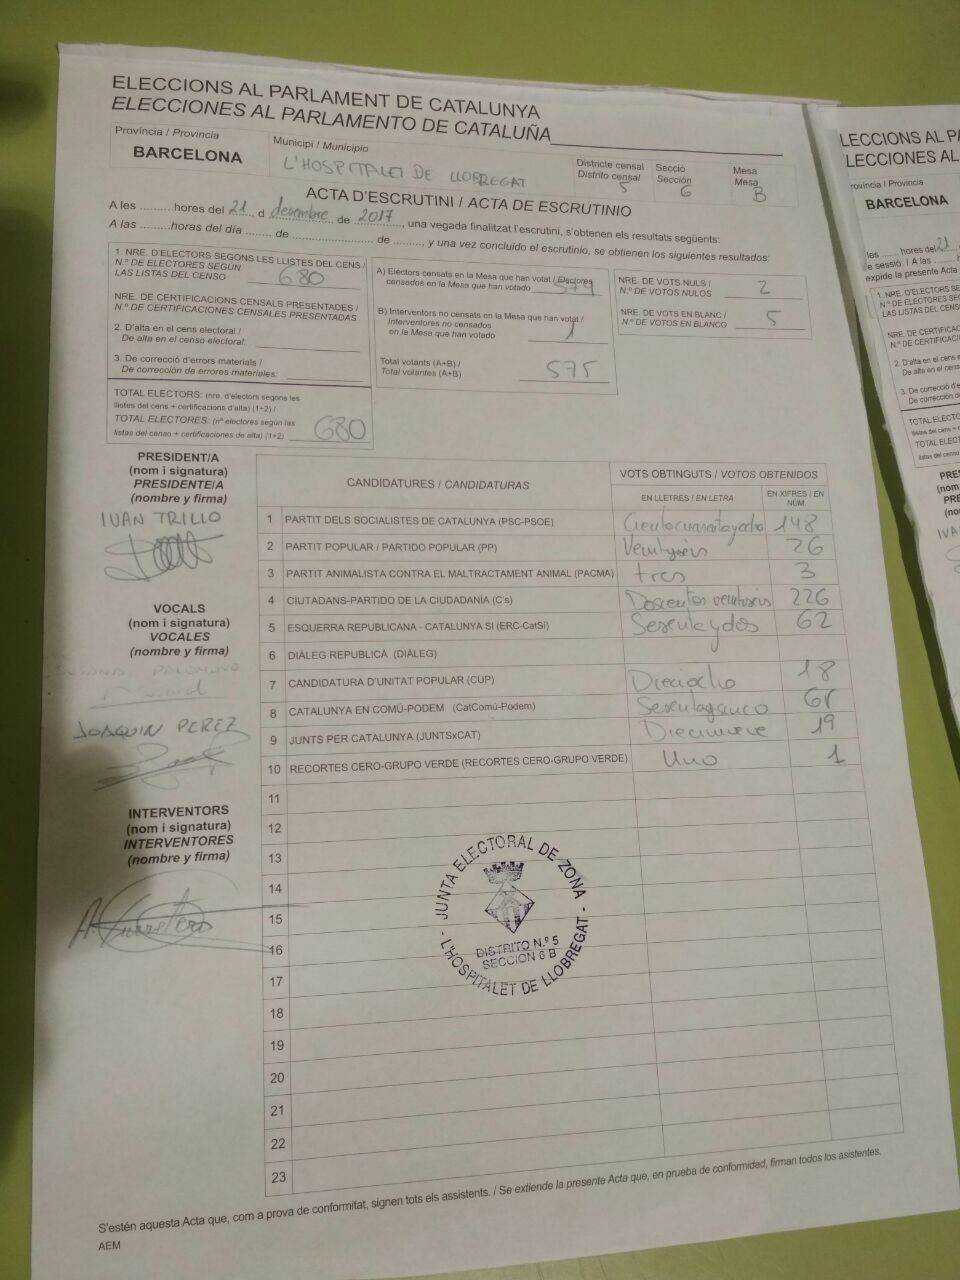 ELECCIONS AL PARLAMENT DE CATALUNYA
ELECCIONES AL PARLAMENTO DE CATALUÑA
Província / Provincia
BARCELONA
Municipi / Municipio
L'HOSPITALET DE LLOBREGAT
Districte censal
Distrito censal
5
Secció
Sección
6
Mesa
Mesa
B
ACTA D'ESCRUTINI / ACTA DE ESCRUTINIO
A les ..........hores del 21 d desembre de 2017, una vegada finalitzat l'escrutini, s'obtenen els resultats següents:
A las .........horas del día ...... de .......................... de ........, y una vez concluido el escrutinio, se obtienen los siguientes resultados:
1. NRE. D'ELECTORS SEGONS LES LLISTES DEL CENS /
N.º DE ELECTORES SEGÚN
LAS LISTAS DEL CENSO 680
NRE. DE CERTIFICACIONS CENSALS PRESENTADES /
N.º DE CERTIFICACIONES CENSALES PRESENTADAS
2. D'alta en el cens electoral /
De alta en el censo electoral:
3. De correcció d'errors materials /
De corrección de errores materiales:
TOTAL ELECTORS: (nre. d'electors segons les
llistes del cens + certificacions d'alta) (1+2) /
TOTAL ELECTORES: (nº electores según las
listas del censo + certificaciones de alta) (1+2) 680
A) Electors censats en la Mesa que han votat / Electores
censados en la Mesa que han votado 574
B) Interventors no censats en la Mesa que han votat /
Interventores no censados
en la Mesa que han votado 1
Total votants (A+B) /
Total votantes (A+B) 575
NRE. DE VOTS NULS /
N.º DE VOTOS NULOS 2
NRE. DE VOTS EN BLANC /
N.º DE VOTOS EN BLANCO 5
PRESIDENT/A
(nom i signatura)
PRESIDENTE/A
(nombre y firma)
IVAN TRILLO
VOCALS
(nom i signatura)
VOCALES
(nombre y firma)
SUSANA PALOMINO
JOAQUIN PEREZ
INTERVENTORS
(nom i signatura)
INTERVENTORES
(nombre y firma)
CANDIDATURES / CANDIDATURAS
VOTS OBTINGUTS / VOTOS OBTENIDOS
EN LLETRES / EN LETRA
EN XIFRES / EN NÚM.
1 PARTIT DELS SOCIALISTES DE CATALUNYA (PSC-PSOE) Cientocuarentayocho 148
2 PARTIT POPULAR / PARTIDO POPULAR (PP) Veintyseis 26
3 PARTIT ANIMALISTA CONTRA EL MALTRACTAMENT ANIMAL (PACMA) tres 3
4 CIUTADANS-PARTIDO DE LA CIUDADANÍA (C's) Doscientos veintiseis 226
5 ESQUERRA REPUBLICANA - CATALUNYA SI (ERC-CatSí) Sesentaydos 62
6 DIÀLEG REPUBLICÀ (DIÀLEG)
7 CANDIDATURA D'UNITAT POPULAR (CUP) Dieciocho 18
8 CATALUNYA EN COMÚ-PODEM (CatComú-Podem) Sesentaycinco 65
9 JUNTS PER CATALUNYA (JUNTSxCAT) Diecinueve 19
10 RECORTES CERO-GRUPO VERDE (RECORTES CERO-GRUPO VERDE) Uno 1
11
12
13
14
15
16
17
18
19
20
21
22
23
JUNTA ELECTORAL DE ZONA
DISTRITO N.º 5
SECCION 6 B
- L'HOSPITALET DE LLOBREGAT -
S'estén aquesta Acta que, com a prova de conformitat, signen tots els assistents. / Se extiende la presente Acta que, en prueba de conformidad, firman todos los asistentes.
AEM
LECCIONS AL PA
LECCIONES AL
rovíncia / Provincia
BARCELONA
les ....... hores del 21
e sessió. / A las
expide la presente Acta
1. NRE. D'ELECTORS SE
N.º DE ELECTORES SEG
LAS LISTAS DEL CENSO
NRE. DE CERTIFICAC
N.º DE CERTIFICACI
2. D'alta en el cens e
De alta en el cens
3. De correcció d'e
De corrección de
TOTAL ELECTO
llistes del cens + c
TOTAL ELECTO
listas del censo
PRES
(nom
PRE
(no
IVA